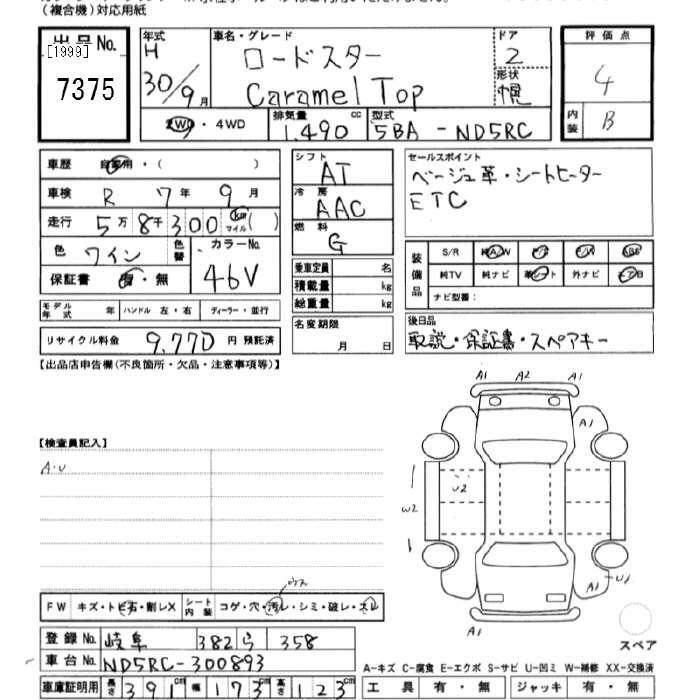 (複合機)対応用紙
出品No. [1999] 7375
年式 H 30/9月
車名・グレード ロードスター Caramel Top
ドア 2
形状 幌
評価点 4
内装 B
2WD・4WD
排気量 1,490 cc
型式 5BA - ND5RC
車歴 自家用・( )
車検 R 7年 9月
走行 5万8千300 km マイル( )
色 ワイン 色替
カラーNo. 46V
保証書 有・無
シフト AT
冷房 AAC
燃料 G
乗車定員 名
積載量 kg
総重量 kg
名変期限 月 日
モデル年式 年 ハンドル 左・右 ディーラー・並行
リサイクル料金 9,770 円 預託済
セールスポイント
ベージュ革・シートヒーター
ETC
装備品
S/R 純A/W P/S P/W ABS
純TV 純ナビ 革シート 外ナビ エアB
ナビ型番:
後日品
取説・保証書・スペアキー
【出品店申告欄(不良箇所・欠品・注意事項等)】
【検査員記入】
A・U
A1 A2 A1
A1
U2
W2
A1 U1
A1
スペア
FW キズ・トビ石・割レX シート内装 コゲ・穴・汚レ・シミ・破レ・スレ
登録No. 岐阜 382 ら 358
車台No. ND5RC-300893
車庫証明用 長さ 391cm 幅 173cm 高さ 123cm
A-キズ C-腐食 E-エクボ S-サビ U-凹ミ W-補修 XX-交換済
工具 有・無 ジャッキ 有・無